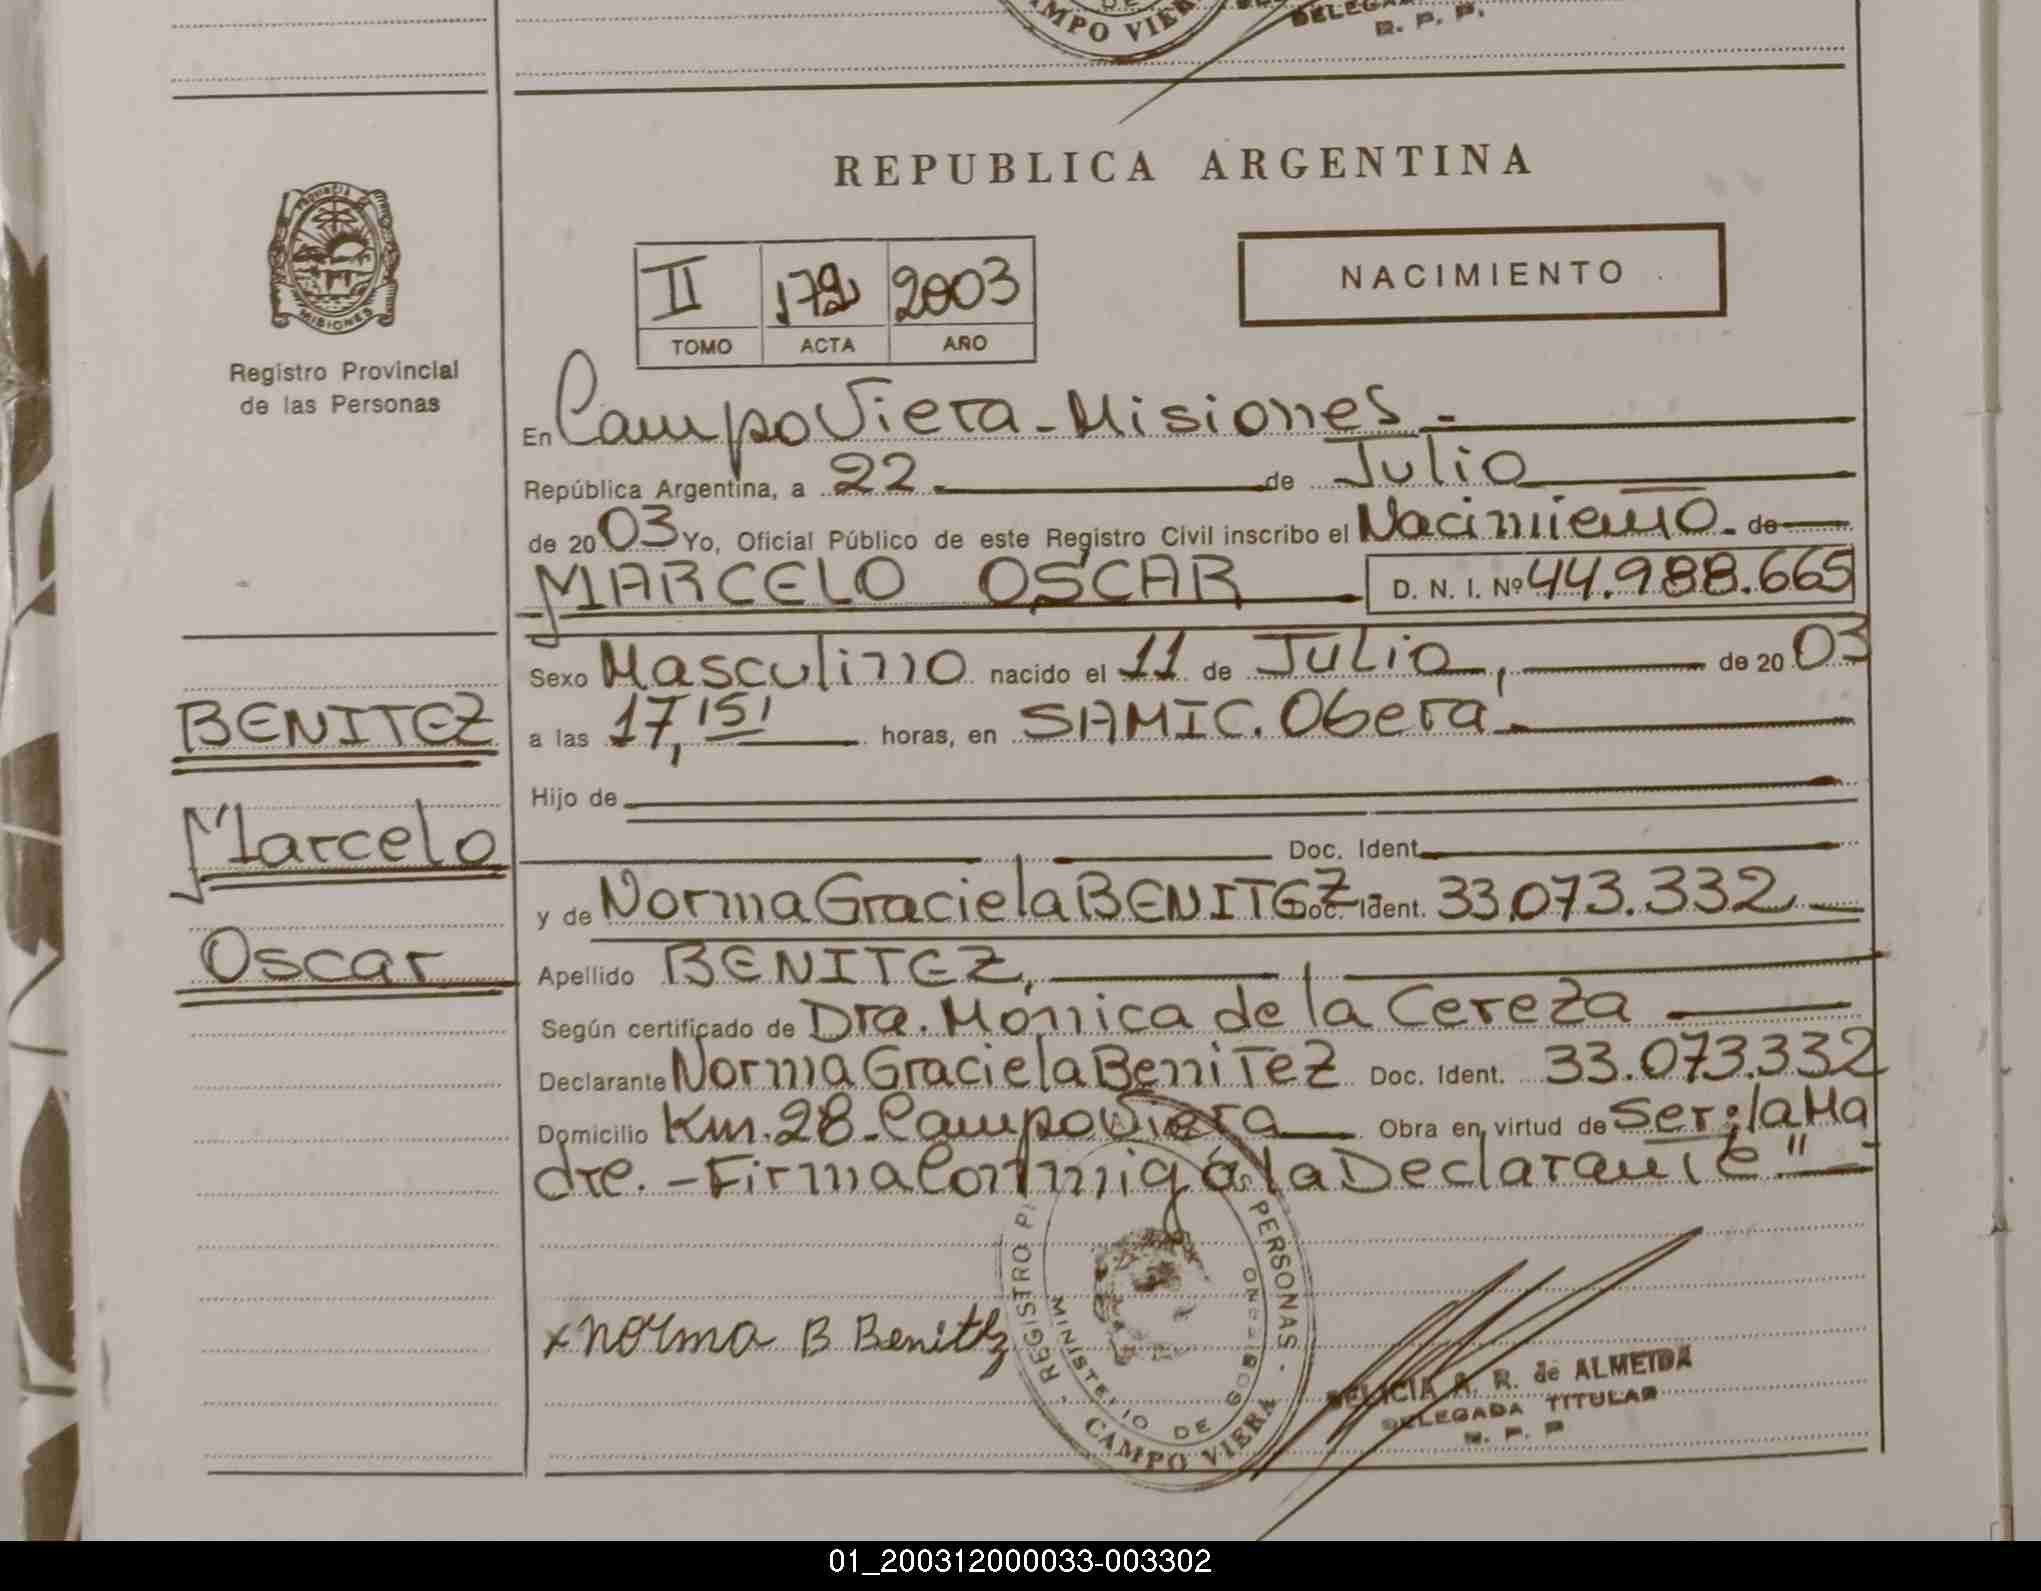 CAMPO VIERA
R. P. P.
REPUBLICA ARGENTINA
PROVINCIA DE
MISIONES
Registro Provincial
de las Personas
II 172 2003
TOMO ACTA AÑO
NACIMIENTO
En Campo Viera - Misiones -
República Argentina, a 22 de Julio
de 2003 Yo, Oficial Público de este Registro Civil inscribo el Nacimiento - de
MARCELO OSCAR D. N. I. Nº 44.988.665
Sexo Masculino nacido el 11 de Julio, de 2003
a las 17,15' horas, en SAMIC. Obera
Hijo de
Doc. Ident.
y de Norma Graciela BENITEZ Doc. Ident. 33.073.332
Apellido BENITEZ,
Según certificado de Dra. Mónica de la Cereza
Declarante Norma Graciela Benitez Doc. Ident. 33.073.332
Domicilio Km. 28 - Campo Viera Obra en virtud de ser: la Ma
dre. - Firma Conmigo la Declarante "
BENITEZ
Marcelo
Oscar
x norma B Benitez
REGISTRO PERSONAS
MINISTERIO DE GOBIERNO
CAMPO VIERA
DELICIA A. R. de ALMEIDA
DELEGADA TITULAR
R. P. P.
01_200312000033-003302